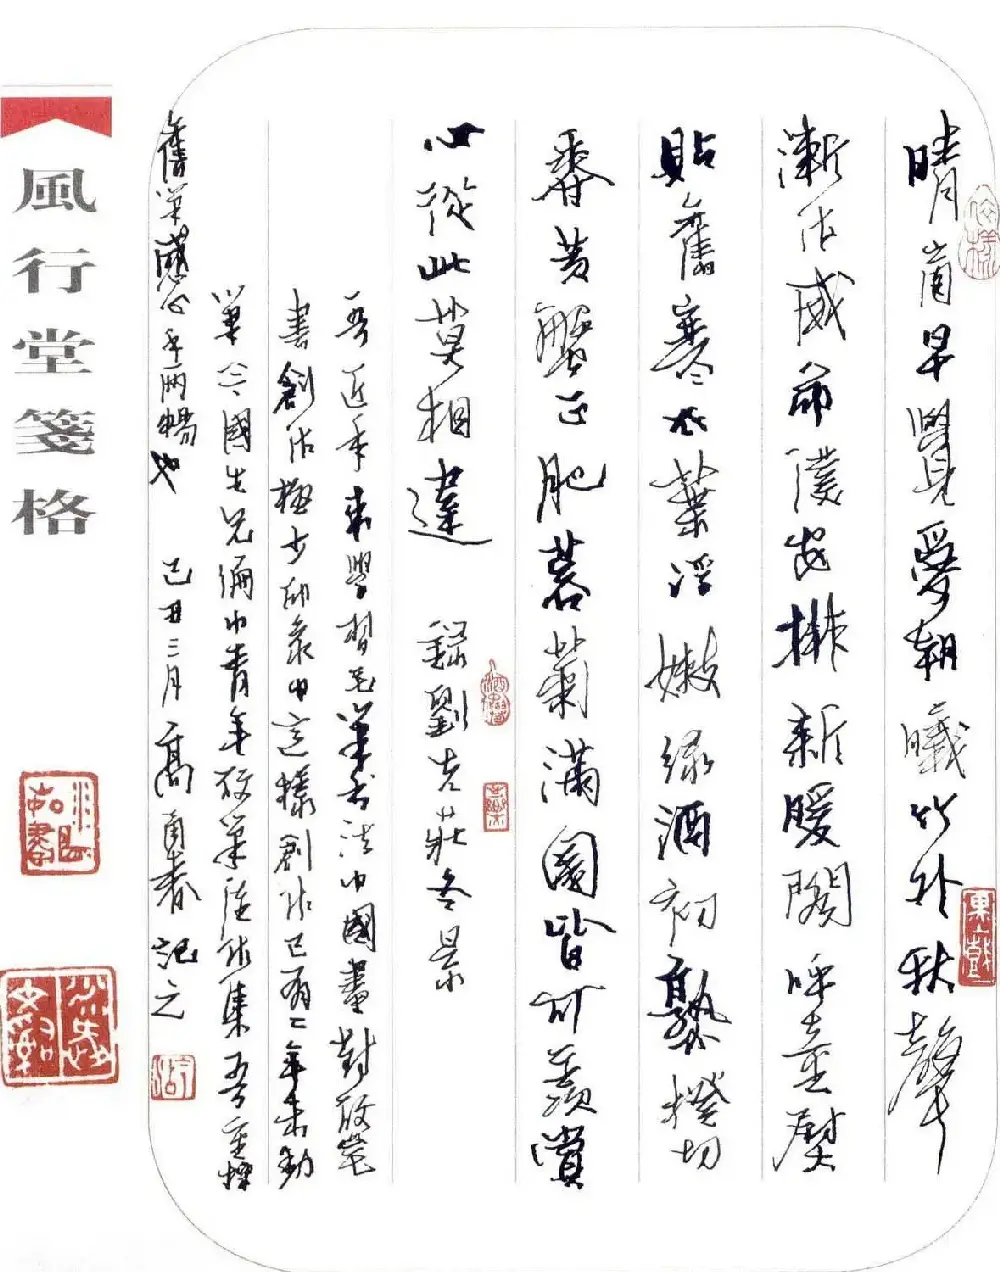 晴窗早覺愛朝曦竹外秋聲
漸作威命僕安排新暖閣呼童熨
貼舊寒衣葉浮嫩綠酒初熟橙切
香黃蟹正肥蓉菊滿園皆可羨賞
心從此莫相違 錄劉克莊冬景
吾近年來學習毛筆書法中國畫對硬筆
書創作極少 這樣創作已有二年未動
筆今國生兄編中青年硬筆 作集吾重操
舊筆感心手兩暢也 己丑三月高 春記之
風行堂箋格